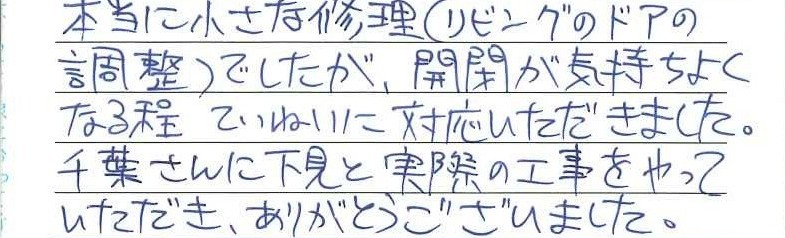 本当に小さな修理(リビングのドアの
調整)でしたが、開閉が気持ちよく
なる程 ていねいに対応いただきました。
千葉さんに下見と実際の工事をやって
いただき、ありがとうございました。